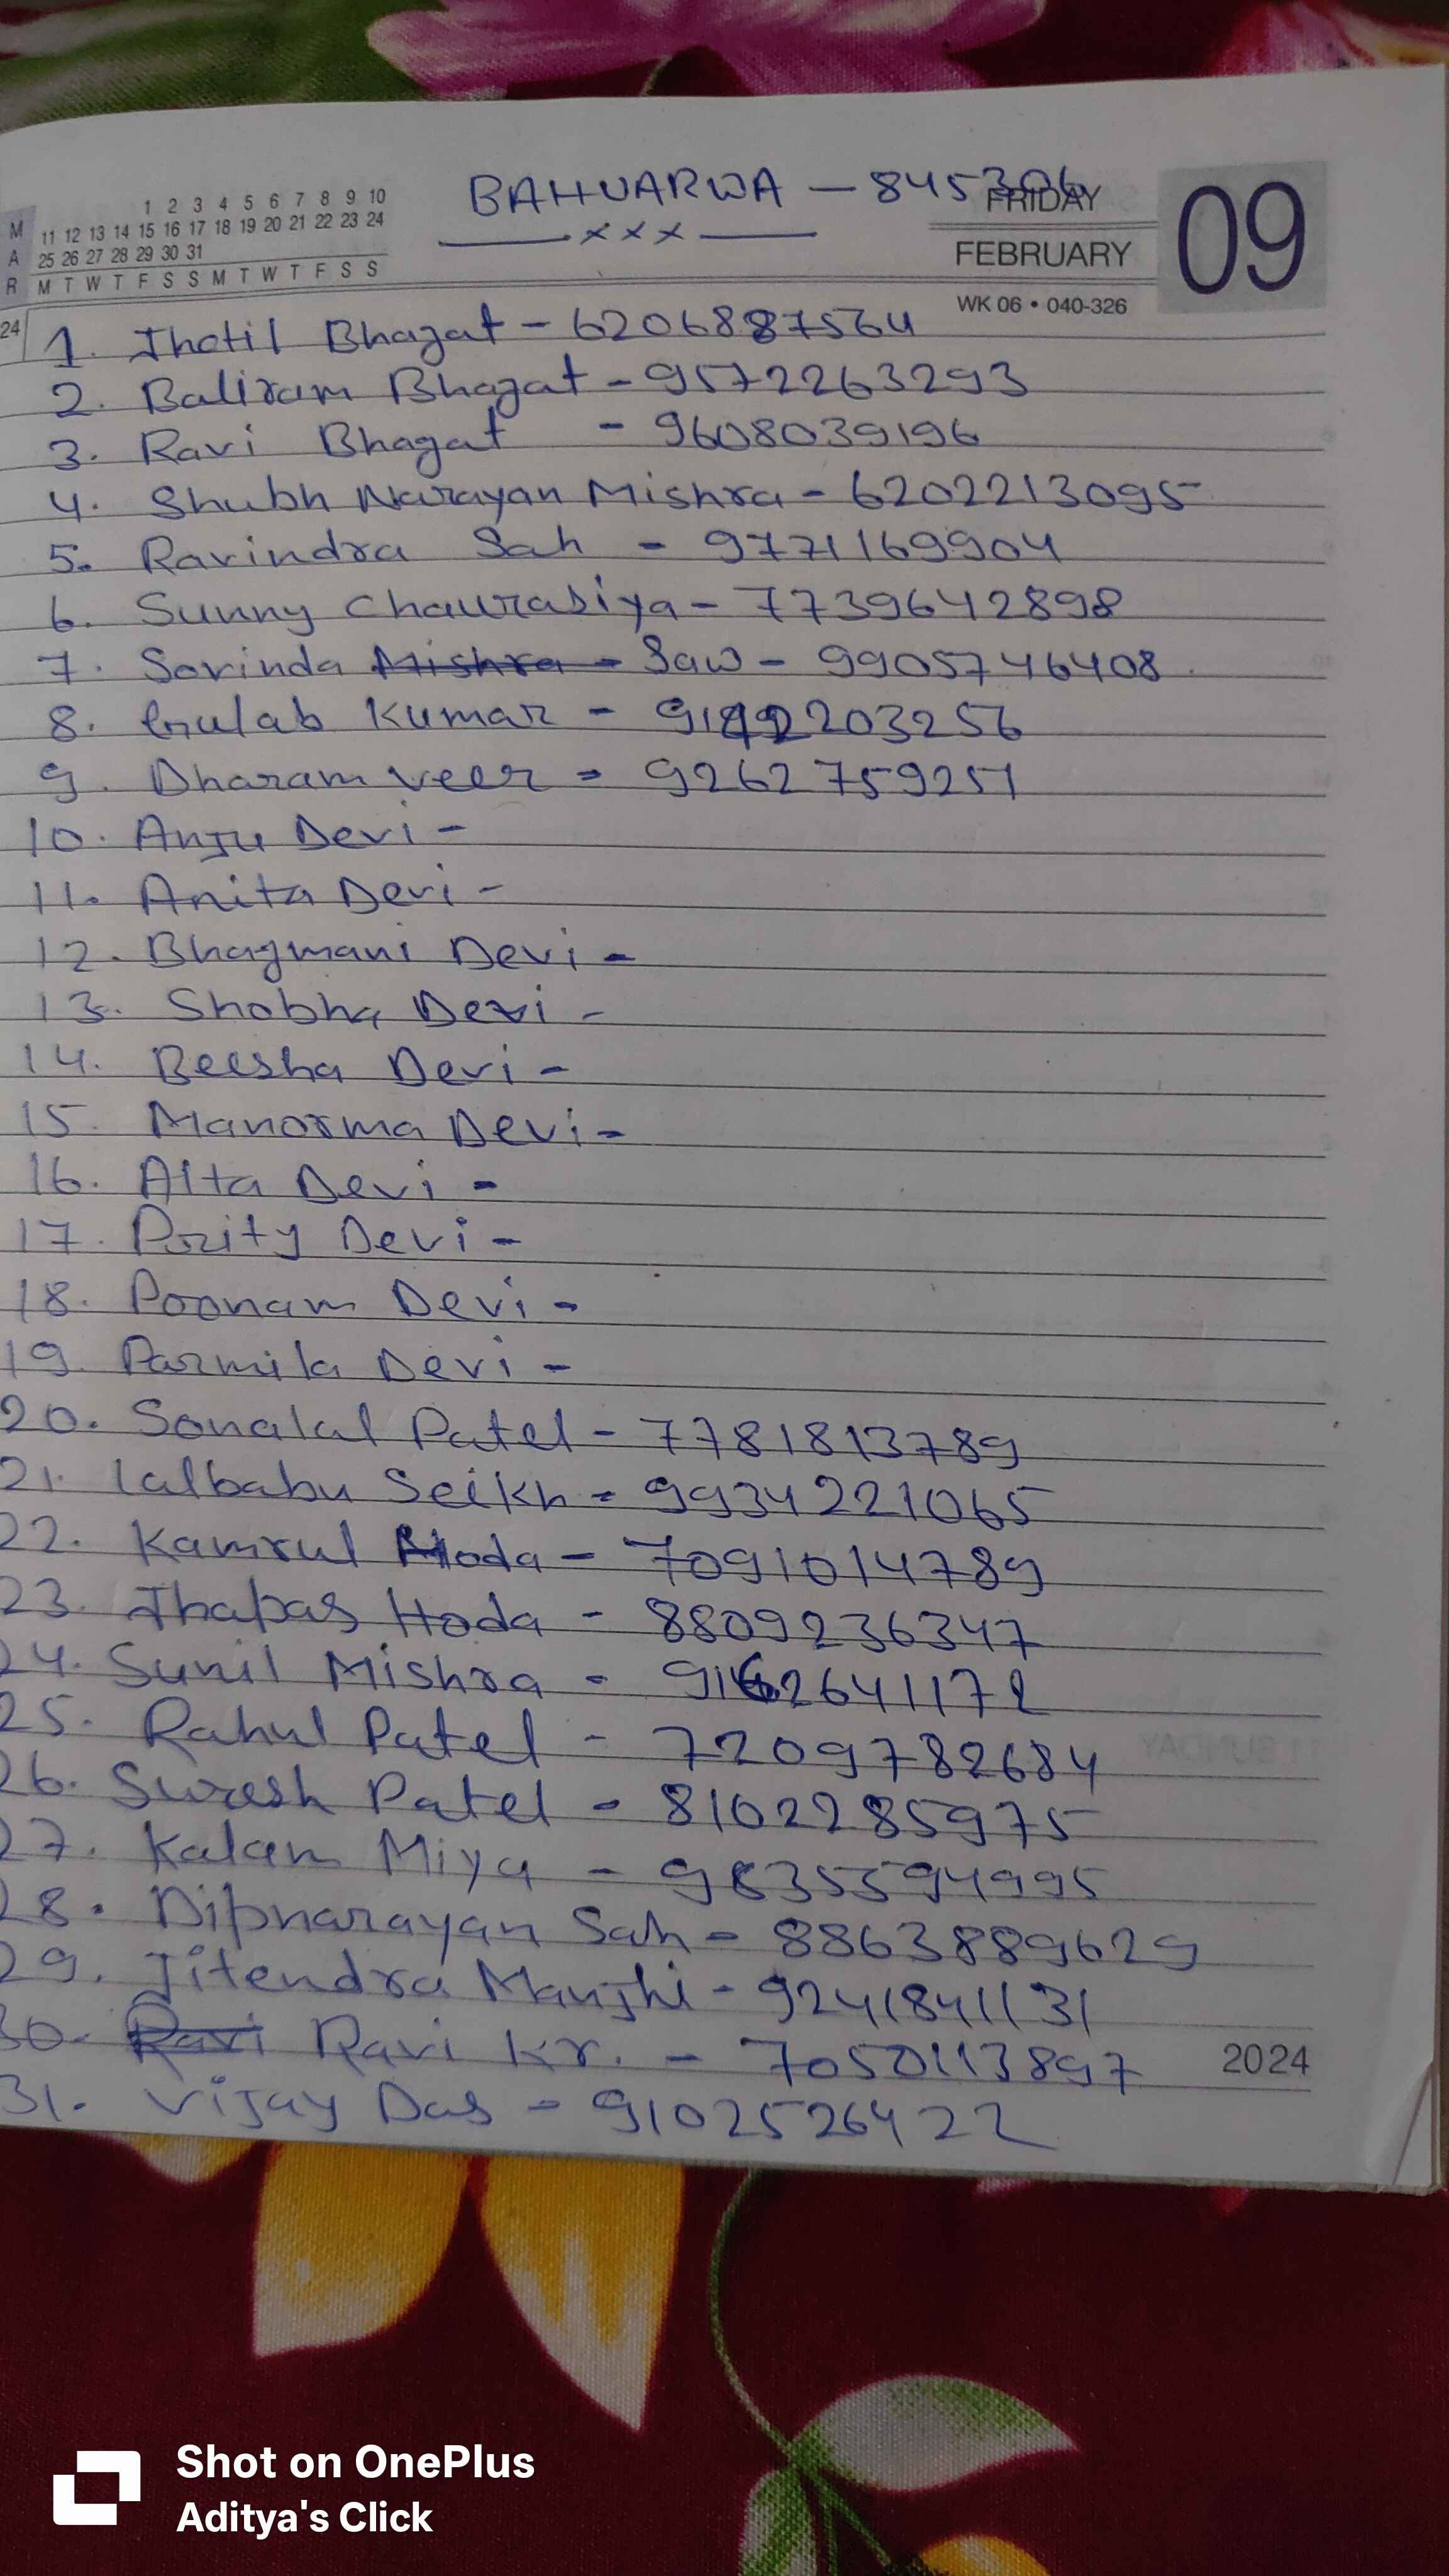 BAHUARWA - 845306
xxx
FRIDAY
FEBRUARY
09
WK 06 • 040-326
1 2 3 4 5 6 7 8 9 10
11 12 13 14 15 16 17 18 19 20 21 22 23 24
25 26 27 28 29 30 31
M T W T F S S M T W T F S S
MAR
24
1. Jhotil Bhagat - 6206887564
2. Baliram Bhagat - 9572263293
3. Ravi Bhagat - 9608039196
4. Shubh Narayan Mishra - 6202213095
5. Ravindra Sah - 9771169904
6. Sunny Chaurasiya - 7739642898
7. Sovinda Mishra - Saw - 9905746408
8. Gulab Kumar - 9142203256
9. Dharam veer - 9262759251
10. Anju Devi -
11. Anita Devi -
12. Bhagmani Devi -
13. Shobha Devi -
14. Beesha Devi -
15. Manorma Devi -
16. Alta Devi -
17. Prity Devi -
18. Poonam Devi -
19. Parmila Devi -
20. Sonalal Patel - 7781813789
21. lalbabu Seikh - 9934221065
22. Kamrul Hoda - 7091014789
23. Jhapas Hoda - 8809236347
24. Sunil Mishra - 9162641172
25. Rahul Patel - 7209782684
26. Suresh Patel - 8102285975
27. Kalam Miya -
28. Dipnarayan Sah - 8863889629
29. Jitendra Manjhi - 9241841131
30. Ravi Ravi Kr. - 7050113897
31. Vijay Das - 9102526422
2024
Shot on OnePlus
Aditya's Click